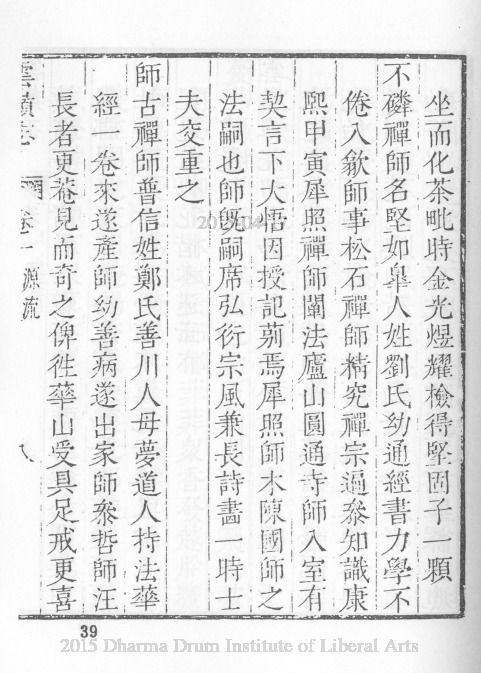 坐而化茶毗時金光煜耀檢得堅固子一顆
不磷禪師名堅如皐人姓劉氏幼通經書力學不
倦入歙師事松石禪師精究禪宗遍叅知識康
熙甲寅犀照禪師闡法廬山圓通寺師入室有
契言下大悟因授記莂焉犀照師木陳國師之
法嗣也師旣嗣席弘衍宗風兼長詩畵一時士
夫交重之
師古禪師普信姓鄭氏善川人母夢道人持法華
經一卷來遂產師幼善病遂出家師叅哲師汪
長者更菴見而奇之俾徃華山受具足戒更喜
雲嶺志 卷一 源流 八
39
2015 Dharma Drum Institute of Liberal Arts